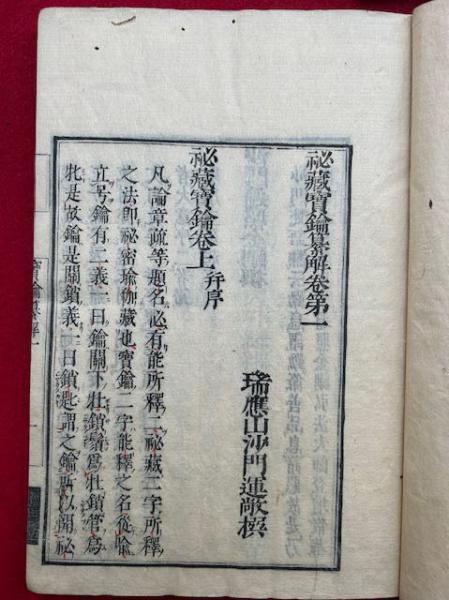 祕藏寶鑰纂解卷第一
瑞應山沙門運敞撰
祕藏寶鑰卷上并序
凡論章疏等題名必有能所釋祕藏二字所釋
之法即祕密瑜伽藏也寶鑰二字能釋之名從喻
立号鑰有二義一曰鑰關下牡鎖鬚爲牡鎖管爲
牝是故鑰是關鎖義一曰鎖匙謂之鑰所以開祕
寶鑰纂解一